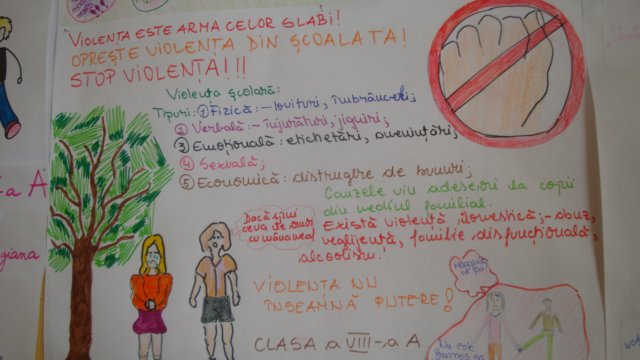 VIOLENȚA ESTE ARMA CELOR SLABI!
OPREȘTE VIOLENȚA DIN ȘCOALA TA!
STOP VIOLENȚA!!!
Violența școlară:
Tipuri: ① Fizică: - lovituri, îmbrânceli;
② Verbală: - înjurături, jigniri;
③ Emoțională: etichetări, amenințări;
④ Sexuală;
⑤ Economică: distrugere de bunuri;
Cauzele vin adeseori la copii
din mediul familial.
Există violență domestică; - abuz,
neglijență, familie disfuncțională,
alcoolism.
Dacă spui
ceva te
cu mâna mea!
VIOLENȚA NU
ÎNSEAMNĂ PUTERE!
CLASA a VIII-a A
Nu este
-a A
giana